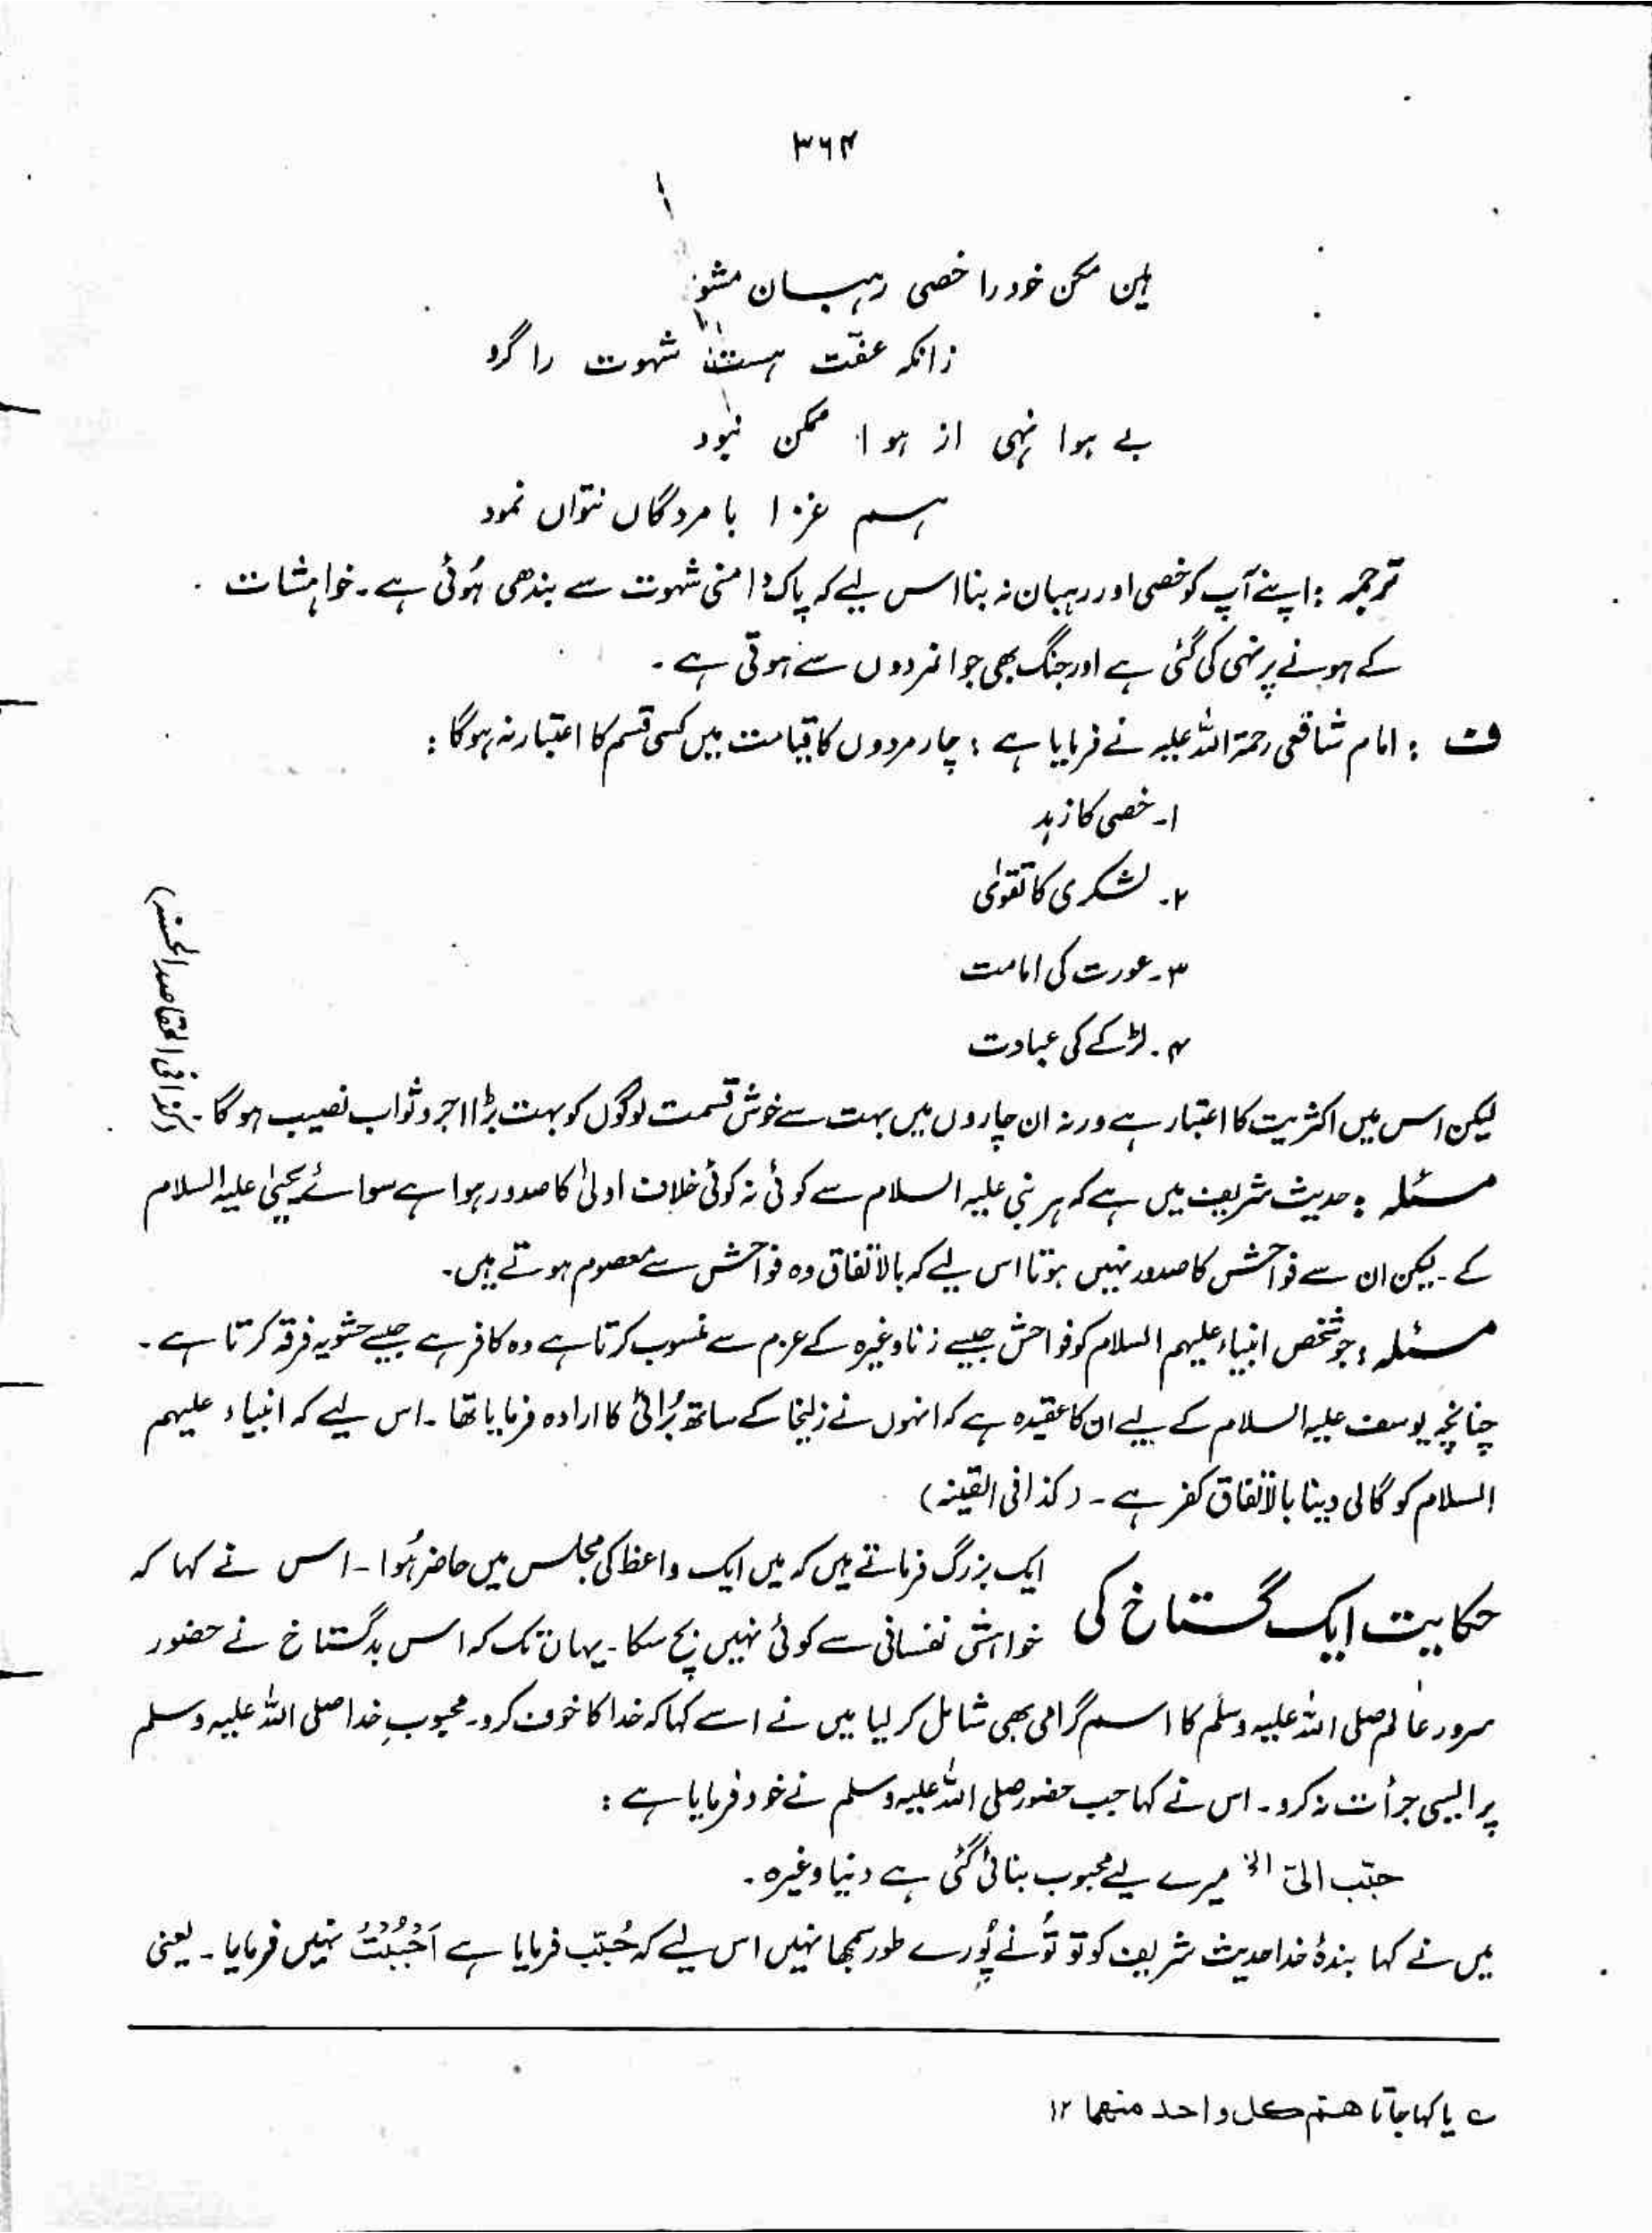 ۳۶۴
ہین مکن خود را خصی رہبان مشو
زانکہ عفّت ہست شہوت را گرو
بے ہوا نہی از ہوا ممکن نبود
ہم غزا با مردگاں نتواں نمود
ترجمہ : اپنے آپ کو خصی اور رہبان نہ بنا اس لیے کہ پاک دامنی شہوت سے بندھی ہُوئی ہے۔ خواہشات
کے ہونے پر نہی کی گئی ہے اور جنگ بھی جوانمردوں سے ہوتی ہے ۔
ف : امام شافعی رحمۃ اللہ علیہ نے فرمایا ہے : چار مردوں کا قیامت میں کسی قسم کا اعتبار نہ ہوگا :
۱۔ خصی کا زہد
۲۔ لشکری کا تقوٰی
۳۔ عورت کی امامت
۴۔ لڑکے کی عبادت
لیکن اس میں اکثریت کا اعتبار ہے ورنہ ان چاروں میں بہت سے خوش قسمت لوگوں کو بہت بڑا اجر و ثواب نصیب ہوگا ۔ (کذا فی المقاصد الحسنہ)
مسئلہ : حدیث شریف میں ہے کہ ہر نبی علیہ السلام سے کوئی نہ کوئی خلاف اولیٰ کا صدور ہوا ہے سوائے یحییٰ علیہ السلام
کے ۔ لیکن ان سے فواحش کا صدور نہیں ہوتا اس لیے کہ بالاتفاق وہ فواحش سے معصوم ہوتے ہیں۔
مسئلہ : جو شخص انبیاء علیہم السلام کو فواحش جیسے زنا وغیرہ کے عزم سے منسوب کرتا ہے وہ کافر ہے جیسے حشویہ فرقہ کرتا ہے ۔
چنانچہ یوسف علیہ السلام کے لیے ان کا عقیدہ ہے کہ انہوں نے زلیخا کے ساتھ بُرائی کا ارادہ فرمایا تھا ۔ اس لیے کہ انبیاء علیہم
السلام کو گالی دینا بالاتفاق کفر ہے ۔ (کذا فی القینہ)
حکایت ایک گستاخ کی
ایک بزرگ فرماتے ہیں کہ میں ایک واعظ کی مجلس میں حاضر ہُوا ۔ اس نے کہا کہ
خواہش نفسانی سے کوئی نہیں بچ سکا ۔ یہاں تک کہ اس بدگستاخ نے حضور
سرور عالم صلی اللہ علیہ وسلم کا اسم گرامی بھی شامل کر لیا میں نے اسے کہا کہ خدا کا خوف کرو ۔ محبوبِ خدا صلی اللہ علیہ وسلم
پر ایسی جرأت نہ کرو ۔ اس نے کہا جب حضور صلی اللہ علیہ وسلم نے خود فرمایا ہے :
حبّب الیّ الخ میرے لیے محبوب بنائی گئی ہے دنیا وغیرہ ۔
میں نے کہا بندۂ خدا حدیث شریف کو تو تُو نے پُورے طور سمجھا نہیں اس لیے کہ حُبّب فرمایا ہے اَحْبَبْتُ نہیں فرمایا ۔ یعنی
یا کہا جاتا ھتم کل واحد منھما ۱۲